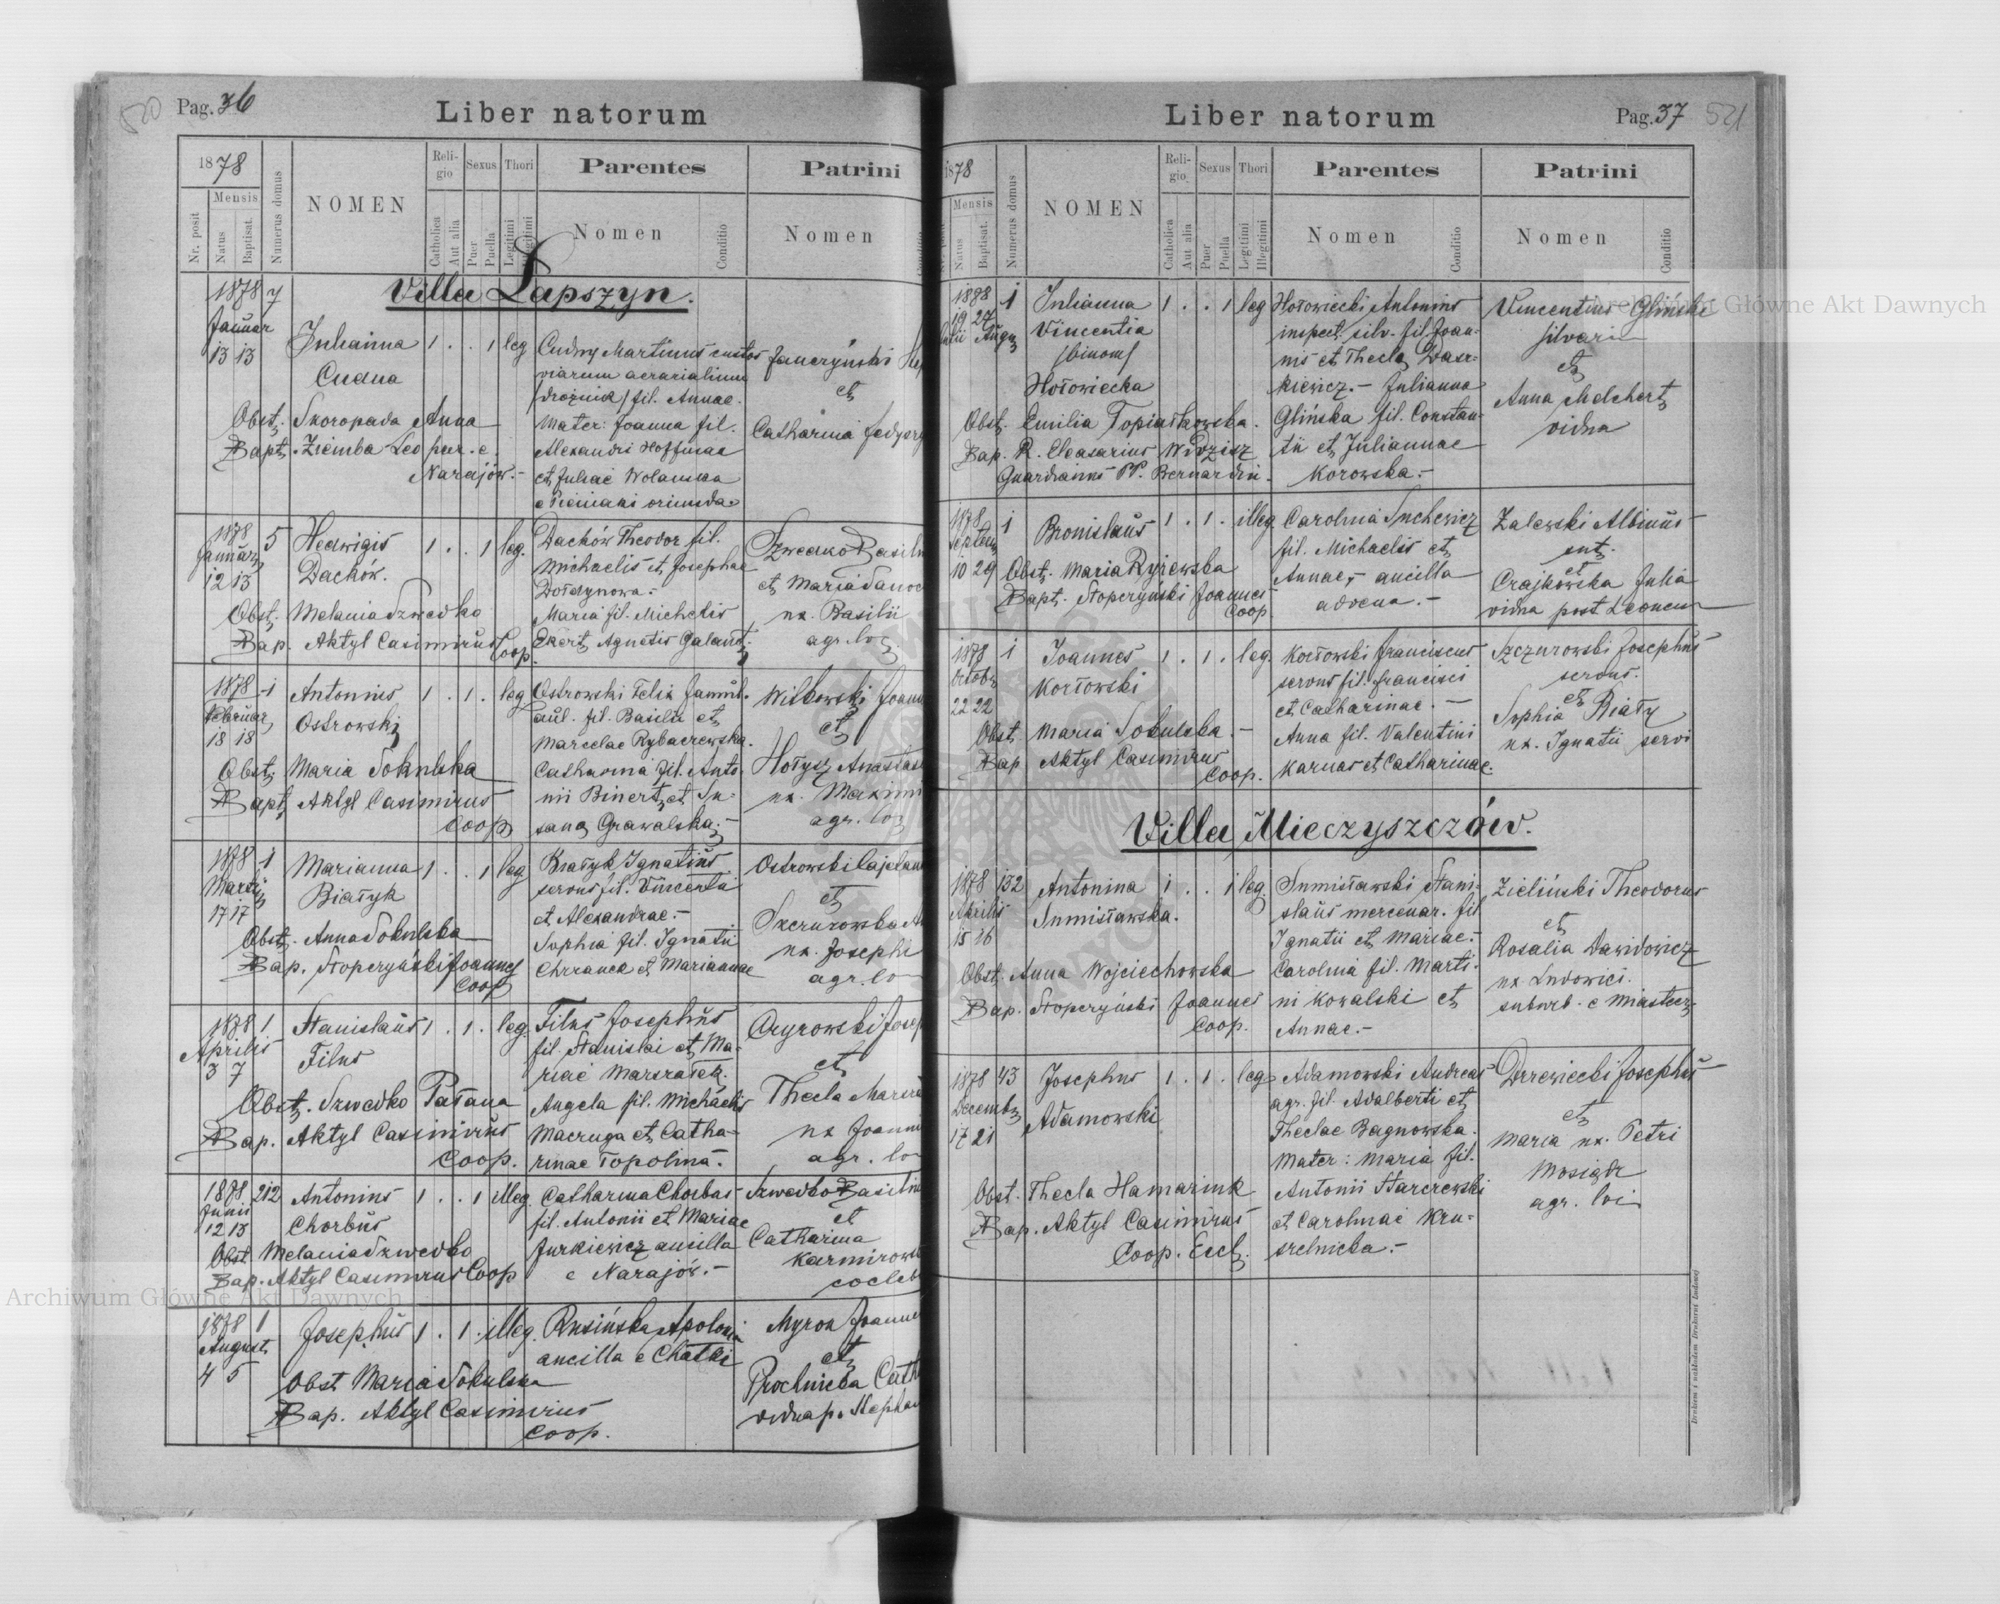 520 Pag. 36
Liber natorum
1878
Mensis
Nr. posit
Natus
Baptisat.
Numerus domus
NOMEN
Religio
Catholica
Aut alia
Sexus
Puer
Puella
Thori
Legitimi
Illegitimi
Parentes
Nomen
Conditio
Patrini
Nomen
Villa Łapszyn.
1878 7
Januar
13 13
Julianna 1 . . 1 leg
Cudna
Obst. Skoropada Anna
Bapt. Ziemba Leo par. e.
Narajów.-
Cudny Martinus custos
viarum aerarialium
/drożnik/ fil. Annae.
Mater: Joanna fil.
Alexandri Hoffman
et Juliae Wolanska
oriunda
Janczyński
et
Catharina
1878 5
Januar
12 13
Hedwigis 1 . . 1 leg.
Daćków.
Obst. Melania Szwedko
Bap. Aktyl Casimirus Coop.
Daćków Theodor fil.
Michaelis et Josephae
Maria fil. Michelis
Ekert Agnetis Galant.
Szwedko Basil
et Maria
ux. Basilii
agr. loc
1878 1
Februar
18 18
Antonius 1 . 1 . leg
Ostrowski
Obst. Maria Sokulska
Bapt. Aktyl Casimirus
Coop
Ostrowski Felix famul.
aul. fil. Basilii et
Marcelae Rybaczewska.
Catharina fil. Anto-
nii Binert et Su-
sana Grawalska.-
Witkowski Joann
et
Hołysz Anastas
ux. Maxim
agr. loc
1878 1
Martij
17 17
Marianna 1 . . 1 leg
Białyk
Obst. Anna Sokulska
Bap. Stoperyński Joannes
Coop
Białyk Ignatius
servus fil. Vincentii
et Alexandrae.-
Sophia fil. Ignatii
et Mariannae
Ostrowski Cajetan
et
Szczurowska
ux. Josephi
agr. lo
1878 1
Aprilis
3 7
Stanislaus 1 . 1 . leg.
Filus
Obst. Szwedko Tatana
Bap. Aktyl Casimirus
Coop.
Filus Josephus
fil. Stanislai et Ma-
riae Marszałek.
Angela fil. Michaelis
Macruga et Catha-
rinae Topolina.-
Josep
et
Thecla
ux Joann
agr. lo
1878 212
Junii
12 13
Antonius 1 . . 1 illeg.
Chorbus
Obst Melania Szwedko
Bap. Aktyl Casimirus Coop
Catharina Chorbas
fil. Antonii et Mariae
Jurkiewicz ancilla
e Narajów.-
Szwedko Basilius
et
Catharina
Kazmirows
coeleb
1878 1
August.
4 5
Josephus 1 . 1 . illeg.
Obst Maria Sokulska
Bap. Aktyl Casimirus
Coop.
Rusińska Apolonia
ancilla e Chatki
Myron Joann
et
Prochnicka Cath
vidua p. Stephan
Pag. 37 521
Liber natorum
1878
Mensis
Natus
Baptisat.
Numerus domus
NOMEN
Religio
Catholica
Aut alia
Sexus
Puer
Puella
Thori
Legitimi
Illegitimi
Parentes
Nomen
Conditio
Patrini
Nomen
Conditio
1878 1
19 27
Augu
Julianna 1 . . 1 leg
Vincentia
/binom/
Hołowiecka
Obst. Emilia
Bap. R. Eleasarius
Guardianus PP. Bernardin.
Hołowiecki Antonius
inspect. silv. fil. Joan-
nis et Thecla Dasz-
kiewicz.- Julianna
Glińska fil. Constan-
tii et Juliannae
Korowska.-
Vincentius Gliński
silvari
et
Anna Melchert
vidua
1878 1
Septem
10 29
Bronislaus 1 . 1 . illeg.
Obst. Maria Ryżewska
Bapt. Stoperyński Joannes
Coop
Carolina Suchewicz
fil. Michaelis et
Annae, ancilla
advena.-
Zalewski Albinus
et
Czajkowska Julia
vidua post Leonem
1878 1
Octob
22 22
Joannes 1 . 1 . leg.
Kozłowski
Obst Maria Sokulska.-
Bap Aktyl Casimirus
Coop.
Kozłowski Franciscus
servus fil. Francisci
et Catharinae.-
Anna fil. Valentini
Karnas et Catharinae.
Szczurowski Josephus
servus.
et
Sophia Biały
ux. Ignatii servi
Villa Mieczyszczów.
1878 132
Aprilis
15 16
Antonina 1 . . 1 leg
Sumisławska.
Obst. Anna Wojciechowska
Bap. Stoperyński Joannes
Coop.
Sumisławski Stani-
slaus mercenar. fil
Ignatii et Mariae.-
Carolina fil. Marti-
ni Kowalski et
Annae.-
Zieliński Theodorus
et
Rosalia Dawidowicz
ux Ludovici.
suburb. e Miastecz.
1878 43
Decemb
17 21
Josephus 1 . 1 . leg
Adamowski
Obst. Thecla Hamaziuk
Bap. Aktyl Casimirus
Coop. Eccl.
Adamowski Andreas
agr. fil. Adalberti et
Theclae Bagnowska.
Mater: Maria fil.
Antonii Starczewski
et Carolinae Kru-
szelnicka.-
Drzewiecki Josephus
et
Maria ux. Petri
Mosiądz
agr. loci
Drukiem i nakładem Drukarni Ludowej
Archiwum Główne Akt Dawnych
Archiwum Główne Akt Dawnych